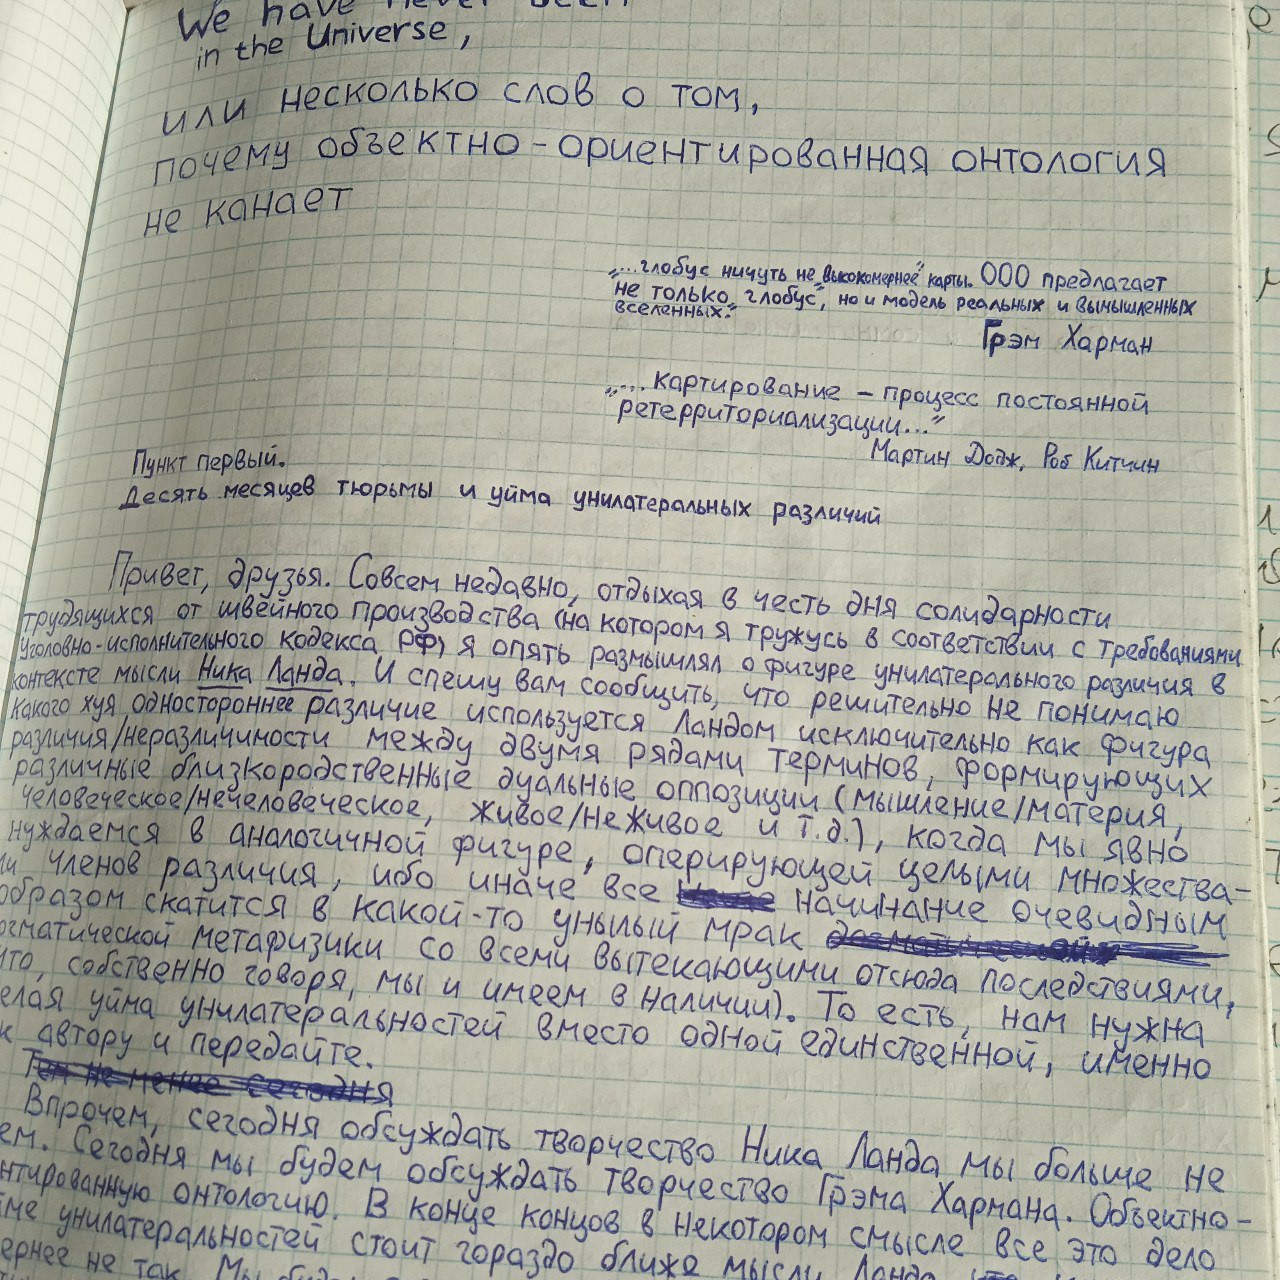 We have never been
in the Universe,
или несколько слов о том,
почему объектно-ориентированная онтология
не канает
"...глобус ничуть не "высокомернее" карты. ООО предлагает
не только "глобус", но и модель реальных и вымышленных
вселенных."
Грэм Харман
"...картирование – процесс постоянной
ретерриториализации..."
Мартин Додж, Роб Китчин
Пункт первый.
Десять месяцев тюрьмы и уйма унилатеральных различий
Привет, друзья. Совсем недавно, отдыхая в честь дня солидарности
трудящихся от швейного производства (на котором я тружусь в соответствии с требованиями
Уголовно-исполнительного кодекса РФ) я опять размышлял о фигуре унилатерального различия в
контексте мысли Ника Ланда. И спешу вам сообщить, что решительно не понимаю
какого хуя одностороннее различие используется Ландом исключительно как фигура
различия/неразличимости между двумя рядами терминов, формирующих
различные близкородственные дуальные оппозиции (мышление/материя,
человеческое/нечеловеческое, живое/неживое и т.д.), когда мы явно
нуждаемся в аналогичной фигуре, оперирующей целыми множества-
ми членов различия, ибо иначе все начинание очевидным
образом скатится в какой-то унылый мрак
огматической метафизики со всеми вытекающими отсюда последствиями,
что, собственно говоря, мы и имеем в наличии). То есть, нам нужна
елая уйма унилатеральностей вместо одной единственной, именно
к автору и передайте.
Тем не менее сегодня
Впрочем, сегодня обсуждать творчество Ника Ланда мы больше не
ем. Сегодня мы будем обсуждать творчество Грэма Хармана. Объектно-
нтированную онтологию. В конце концов в некотором смысле все это дело
ме унилатеральностей стоит гораздо ближе мысли Ланда
ернее не так. Мы